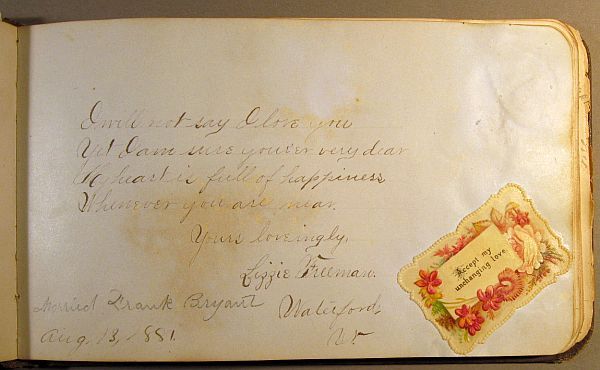 I will not say I love you
Yet I am sure you'er very dear
My heart is full of happiness
Whenever you are near.
Yours loveingly,
Lizzie Freeman.
Waterford,
Vt
Married Frank Bryant
Aug, 13, 1881.
Accept my
unchanging love.